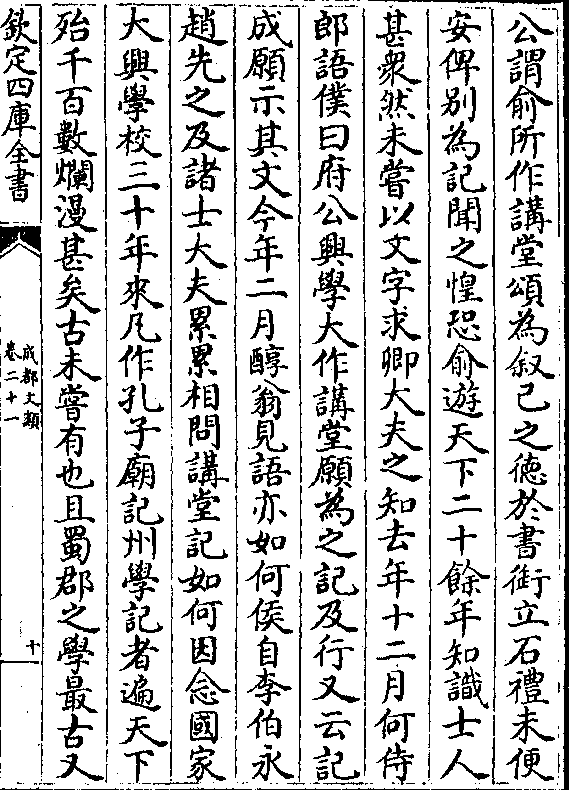 公謂俞所作講堂頌為叙己之徳於書銜立石禮未便
安俾别為記聞之惶恐俞遊天下二十餘年知識士人
甚衆然未嘗以文字求卿大夫之知去年十二月何侍
郎語僕曰府公興學大作講堂願為之記及行又云記
成願示其文今年二月醇翁見語亦如何侯自李伯永
趙先之及諸士大夫累累相問講堂記如何因念國家
大興學校三十年來凡作孔子廟記州學記者遍天下
殆千百數爛漫甚矣古未嘗有也且蜀郡之學最古又
欽定四庫全書
成都文類
卷二十一
十